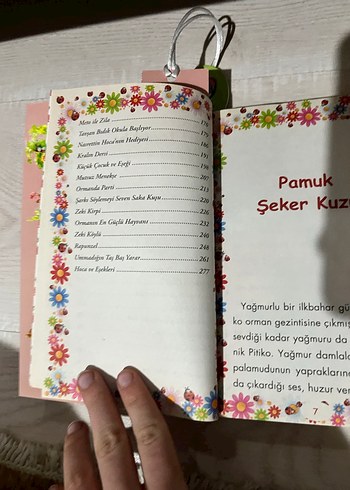 Meto ile Zila 176
Tavşan Bıdık Okula Başlıyor 179
Nasrettin Hoca'nın Hediyesi 186
Kralın Dersi 191
Küçük Çocuk ve Eşeği 194
Mutsuz Menekşe 207
Ormanda Parti 213
Şarkı Söylemeyi Seven Saka Kuşu 220
Zeki Kirpi 226
Ormanın En Güçlü Hayvanı 232
Zeki Köylü 240
Rapunzel 248
Ummadığın Taş Baş Yarar 261
Hoca ve Eşekleri 277
Pamuk
Şeker Kuz
Yağmurlu bir ilkbahar gü
ko orman gezintisine çıkmış
sevdiği kadar yağmuru da
nik Pitiko. Yağmur damlala
palamudunun yapraklarına
da çıkardığı ses, huzur ver
7